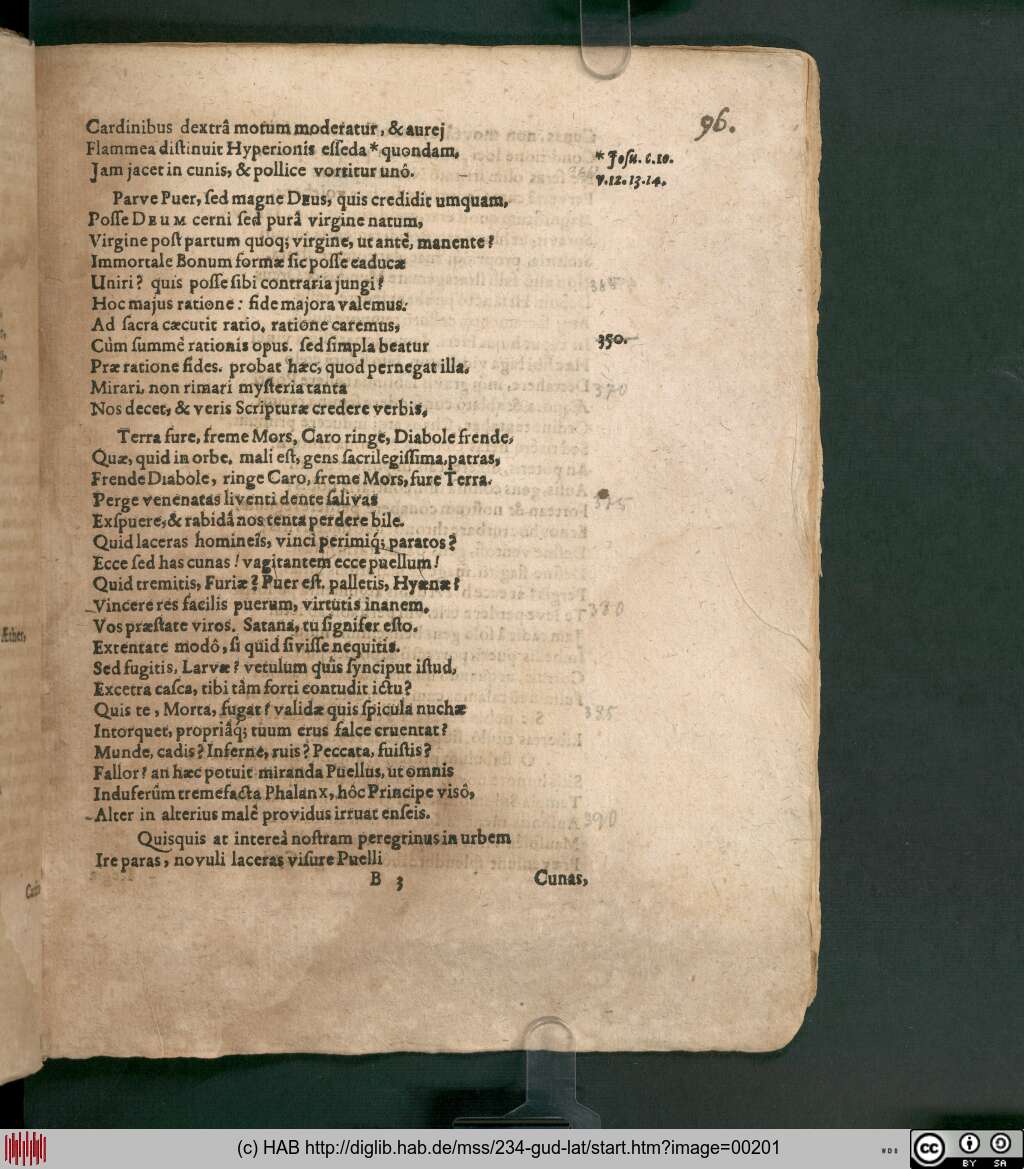 96.
Cardinibus dextrâ motum moderatur, & aurej
Flammea distinuit Hyperionis esseda * quondam,
* Josu. c. 10.
Jam jacet in cunis, & pollice vortitur unô.
v. 12. 13. 14.
Parve Puer, sed magne DEus, quis credidit umquam,
Posse DEUM cerni sed purâ virgine natum,
Virgine post partum quoq; virgine, ut antè, manente?
Immortale Bonum formæ sic posse caducæ
Uniri? quis posse sibi contraria jungi?
Hoc majus ratione: fide majora valemus.
Ad sacra cæcutit ratio, ratione caremus,
Cùm summè rationis opus. sed simpla beatur
350.
Præ ratione fides. probat hæc, quod pernegat illa.
Mirari, non rimari mysteria tanta
370
Nos decet, & veris Scripturæ credere verbis.
Terra fure, freme Mors, Caro ringe, Diabole frende,
Quæ, quid in orbe, mali est, gens sacrilegissima, patras,
Frende Diabole, ringe Caro, freme Mors, fure Terra.
Perge venenatas liventi dente salivas
375
Exspuere, & rabidâ nos tenta perdere bile.
Quid laceras homineîs, vinci perimiq; paratos?
Ecce sed has cunas! vagitantem ecce puellum!
Quid tremitis, Furiæ? Puer est. palletis, Hyænæ?
Vincere res facilis puerum, virtutis inanem.
380
Vos præstate viros. Satana, tu signifer esto.
Extentate modô, si quid sivisse nequitis.
Sed fugitis, Larvæ? vetulum quîs synciput istud,
Excetra casca, tibi tàm forti contudit ictu?
Quis te, Morta, fugat? validæ quis spicula nuchæ
385
Intorquet, propriâq; tuum crus falce cruentat?
Munde, cadis? Inferne, ruis? Peccata, fuistis?
Fallor? an hæc potuit miranda Puellus, ut omnis
Induferûm tremefacta Phalanx, hôc Principe visô,
Alter in alterius malè providus irruat enseis.
390
Quisquis at intereà nostram peregrinus in urbem
Ire paras, novuli laceras visure Puelli
B 3
Cunas,
Æther,
(c) HAB http://diglib.hab.de/mss/234-gud-lat/start.htm?image=00201
cc
BY SA